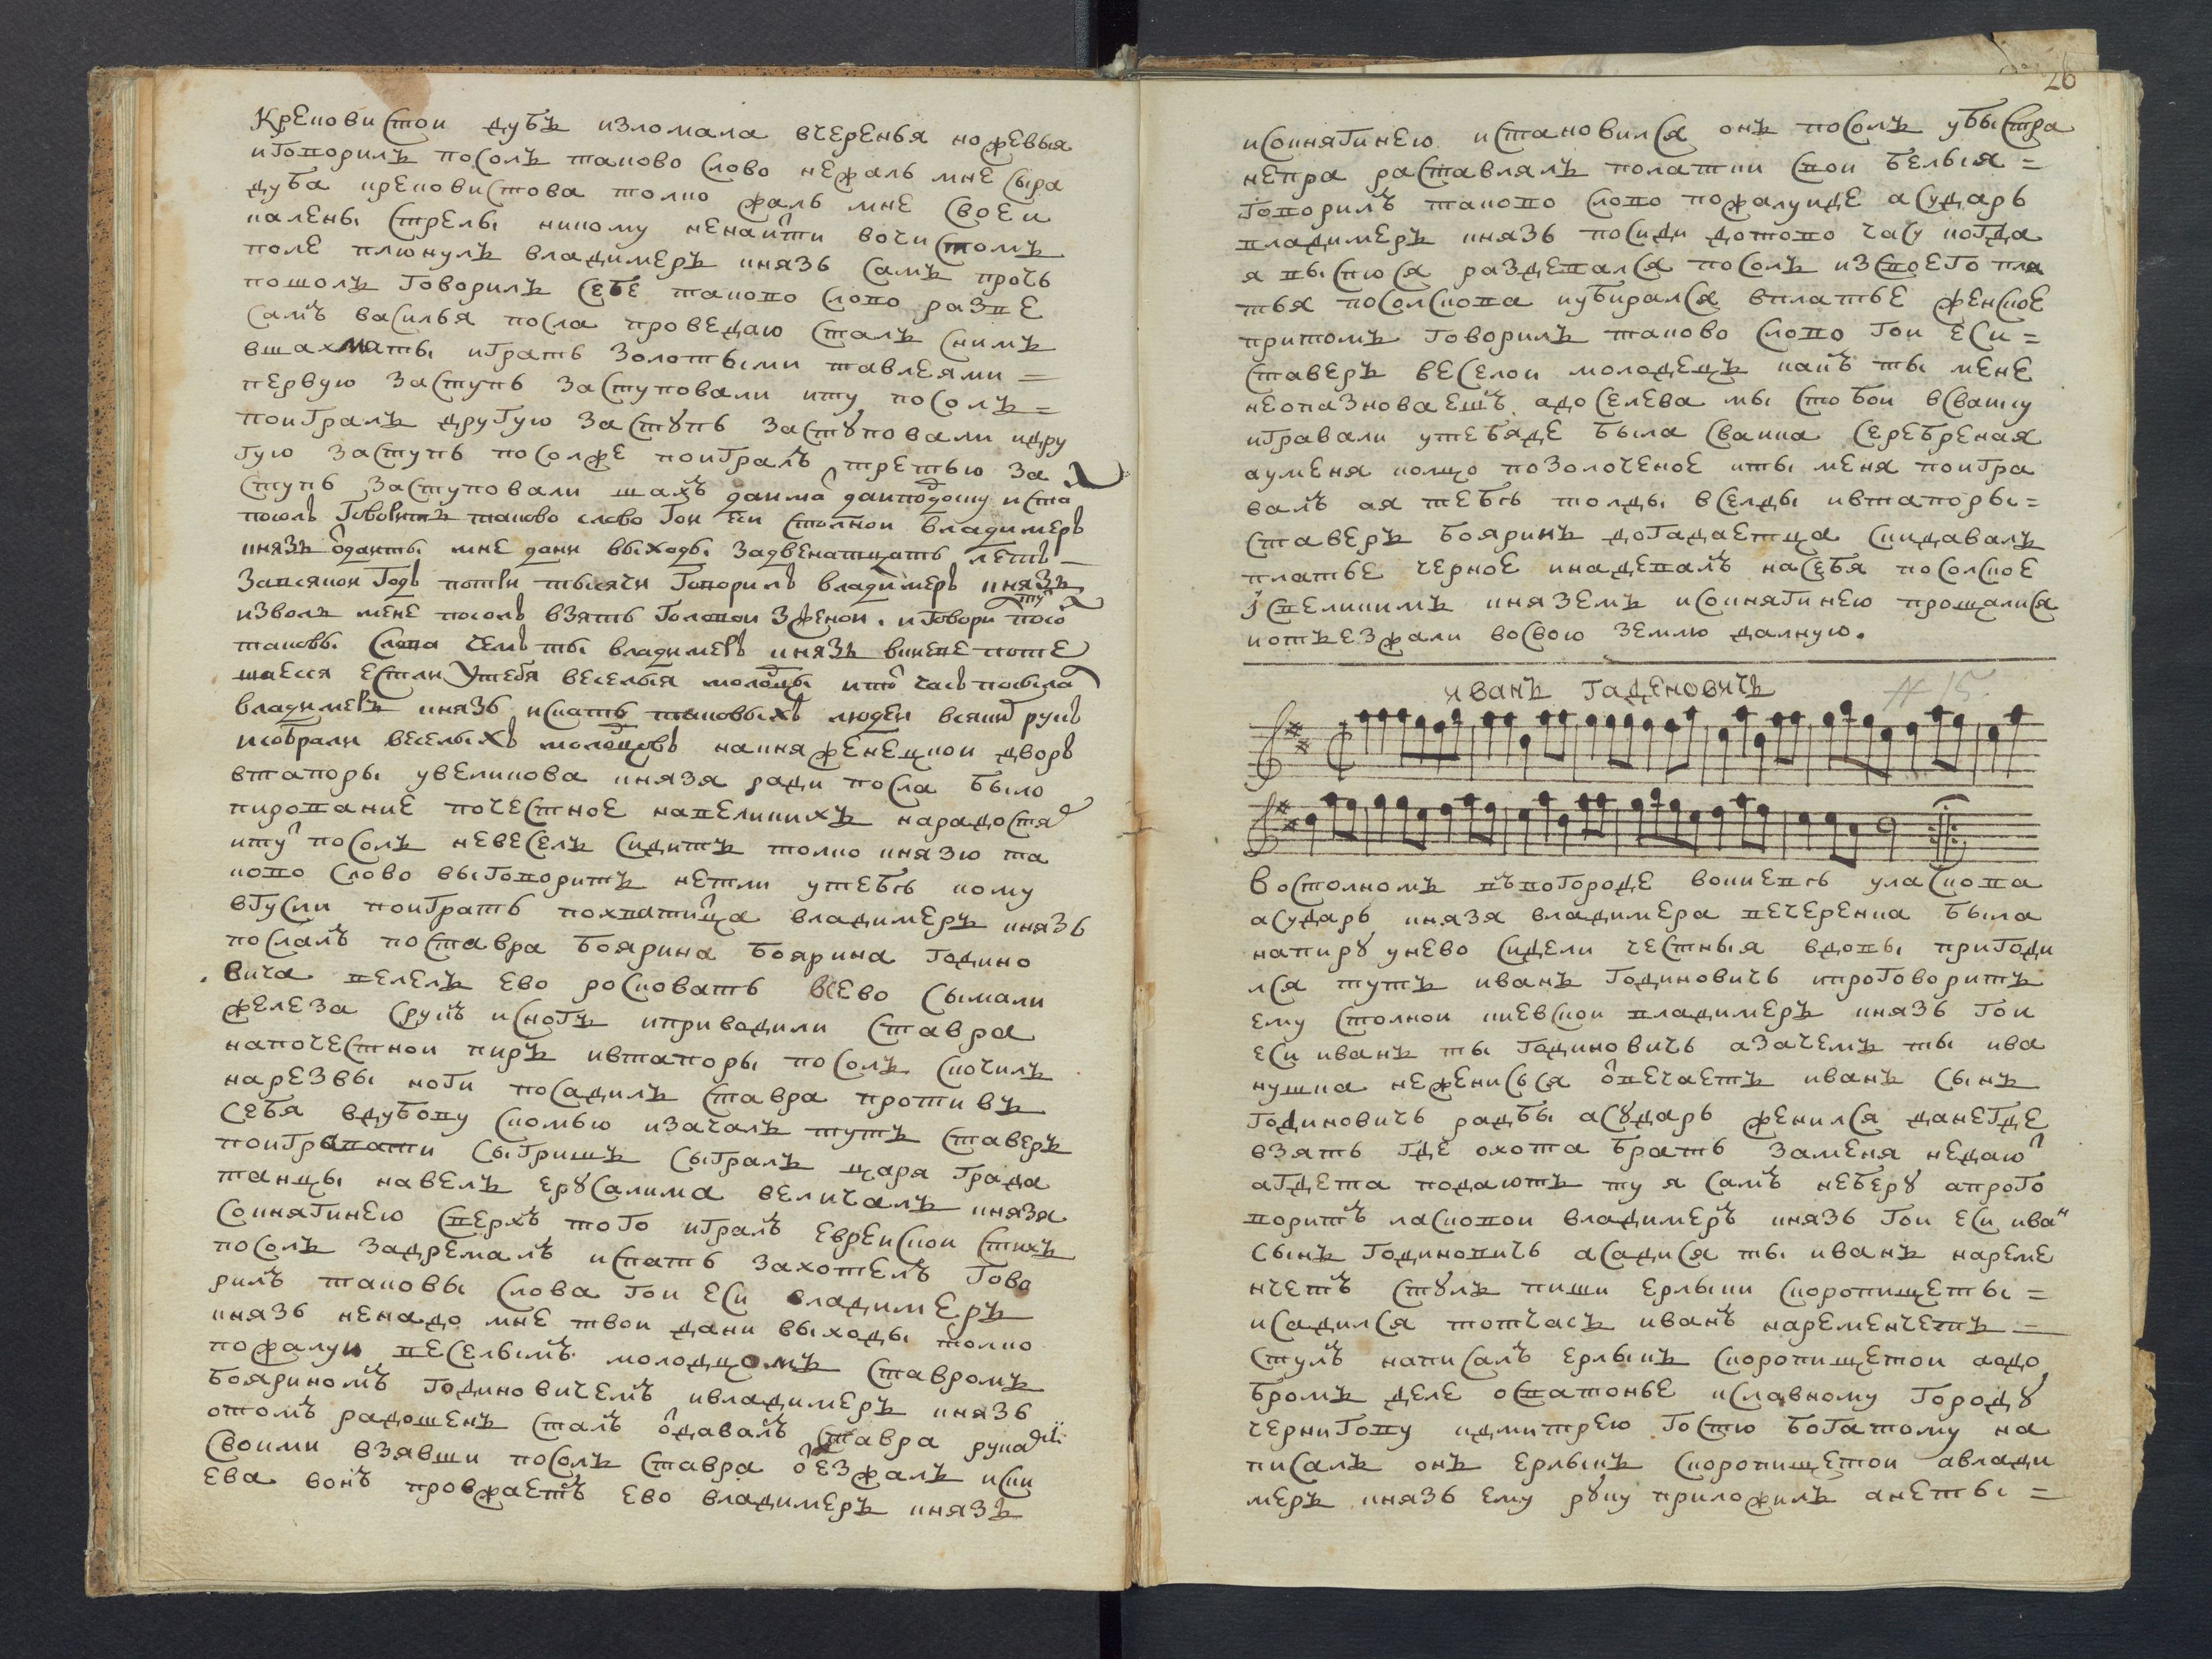 Креновистои дубъ изломала вчеренья ножевыя
иговорилъ посолъ таково слово нежаль мне сыра
дуба креновистова толко жаль мне своеи
калены стрелы никому ненаити вочистомъ
поле плюнулъ владимеръ князь самъ прочь
пошолъ говорилъ себе таково слово разве
самъ василья посла проведаю сталъ снимъ
вшахматы играть золотыми тавлеями =
первую заступь заступовали иту посолъ =
поигралъ другую заступь заступовали идру
гую заступь посолже поигралъ третью за
ступь заступовали шахъ даима даиподошу иста
посолъ говорить таково слово гои еси столнои владимеръ
князь одаиты мне дани выходы задвенатцать летъ
завсякои годъ потри тысячи говорилъ владимеръ князь
изволь мене посолъ взять головои зженои. иговори посо
таковы слова чемъ ты владимеръ князь вкиеве поте
шаесся естли утебя веселыя молодцы ито часъ посыла
владимеръ князь искать таковыхъ людеи всяких рукъ
исобрали веселыхъ молодцовъ накняженецкои дворъ
втапоры увеликова князя ради посла было
пированиe почестное навеликихъ нарадостя
иту посолъ невеселъ сидитъ толко князю та
ково слово выговоритъ нетли утебь кому
вгусли поиграть похватица владимеръ князь
послалъ поставра боярина боярина годино
вича велелъ ево росковать всево сымали
железа срукъ исногъ иприводили ставра
напочестнои пиръ ивтапоры посолъ скочилъ
нарезвы ноги посадилъ ставра противъ
себя вдубову скомью изачалъ тутъ ставеръ
поигравати сыгришъ сыгралъ царя града
танцы навелъ ерусалима величалъ князя
сокнягинею сверхъ того игралъ евреискои стихъ
посолъ задремалъ испать захотелъ гово
рилъ таковы слова гои еси владимеръ
князь ненадо мне твои дани выходы толко
пожалуи веселымъ молодцомъ ставромъ
бояриномъ годиновичемъ ивладимеръ князь
отомъ радошенъ сталъ одавалъ ставра рукаѣи
своими взявши посолъ ставра оезжалъ иски
ева вонъ провжаетъ ево владимеръ князь
26
исокнягинею истановился онъ посолъ убыстра
непра раставлялъ полатки свои белыя =
говорилъ таково слово пожалуиде асударь
владимеръ князь посиди дотово часу когда
я высплюся раздевался посолъ изсвоего пла
тья посолскова иубирался вплатье женское
притомъ говорилъ таково слово гои еси =
ставеръ веселои молодецъ какъ ты мене
неопазноваешъ адоселева мы стобои всваику
игравали утебяде была сваика серебреная
ауменя колцо позолоченое иты меня поигра
валъ ая тебѣ толды вселды ивтапоры =
ставеръ бояринъ догадаетца скидавалъ
платье черное инадевалъ насебя посолское
јсвеликимъ князeмъ исокнягинею прощалися
иотъезжали восвою землю далную.
иванъ гаденовичъ № 15
Востолномъ въвогороде вокиевь уласкова
асударь князя владимера вечеренка была
напиру унево сидели честныя вдовы пригоди
лся тутъ иванъ годиновичь ипроговоритъ
ему столнои киевскои владимеръ князь гои
еси иванъ ты годиновичь азачемъ ты ива
нушка неженисься овечаетъ иванъ сынъ
годиновичь радбы асударь женился данегде
взять где охота брать заменя недаю
агдета подаютъ ту я самъ неберу апрого
воритъ ласковои владимеръ князь гои еси ива
сынъ годиновичь асадися ты иванъ нареме
нчетъ стулъ пиши ерлыки скорописщеты =
исадился тотчасъ иванъ наременчетъ =
стулъ написалъ ерлыкъ скорописщетои аодо
бромъ деле осватонье иславному городу
чернигову идмитрею гостю богатому на
писалъ онъ ерлыкъ скорописщетои авлади
меръ князь ему руку приложилъ анеты =